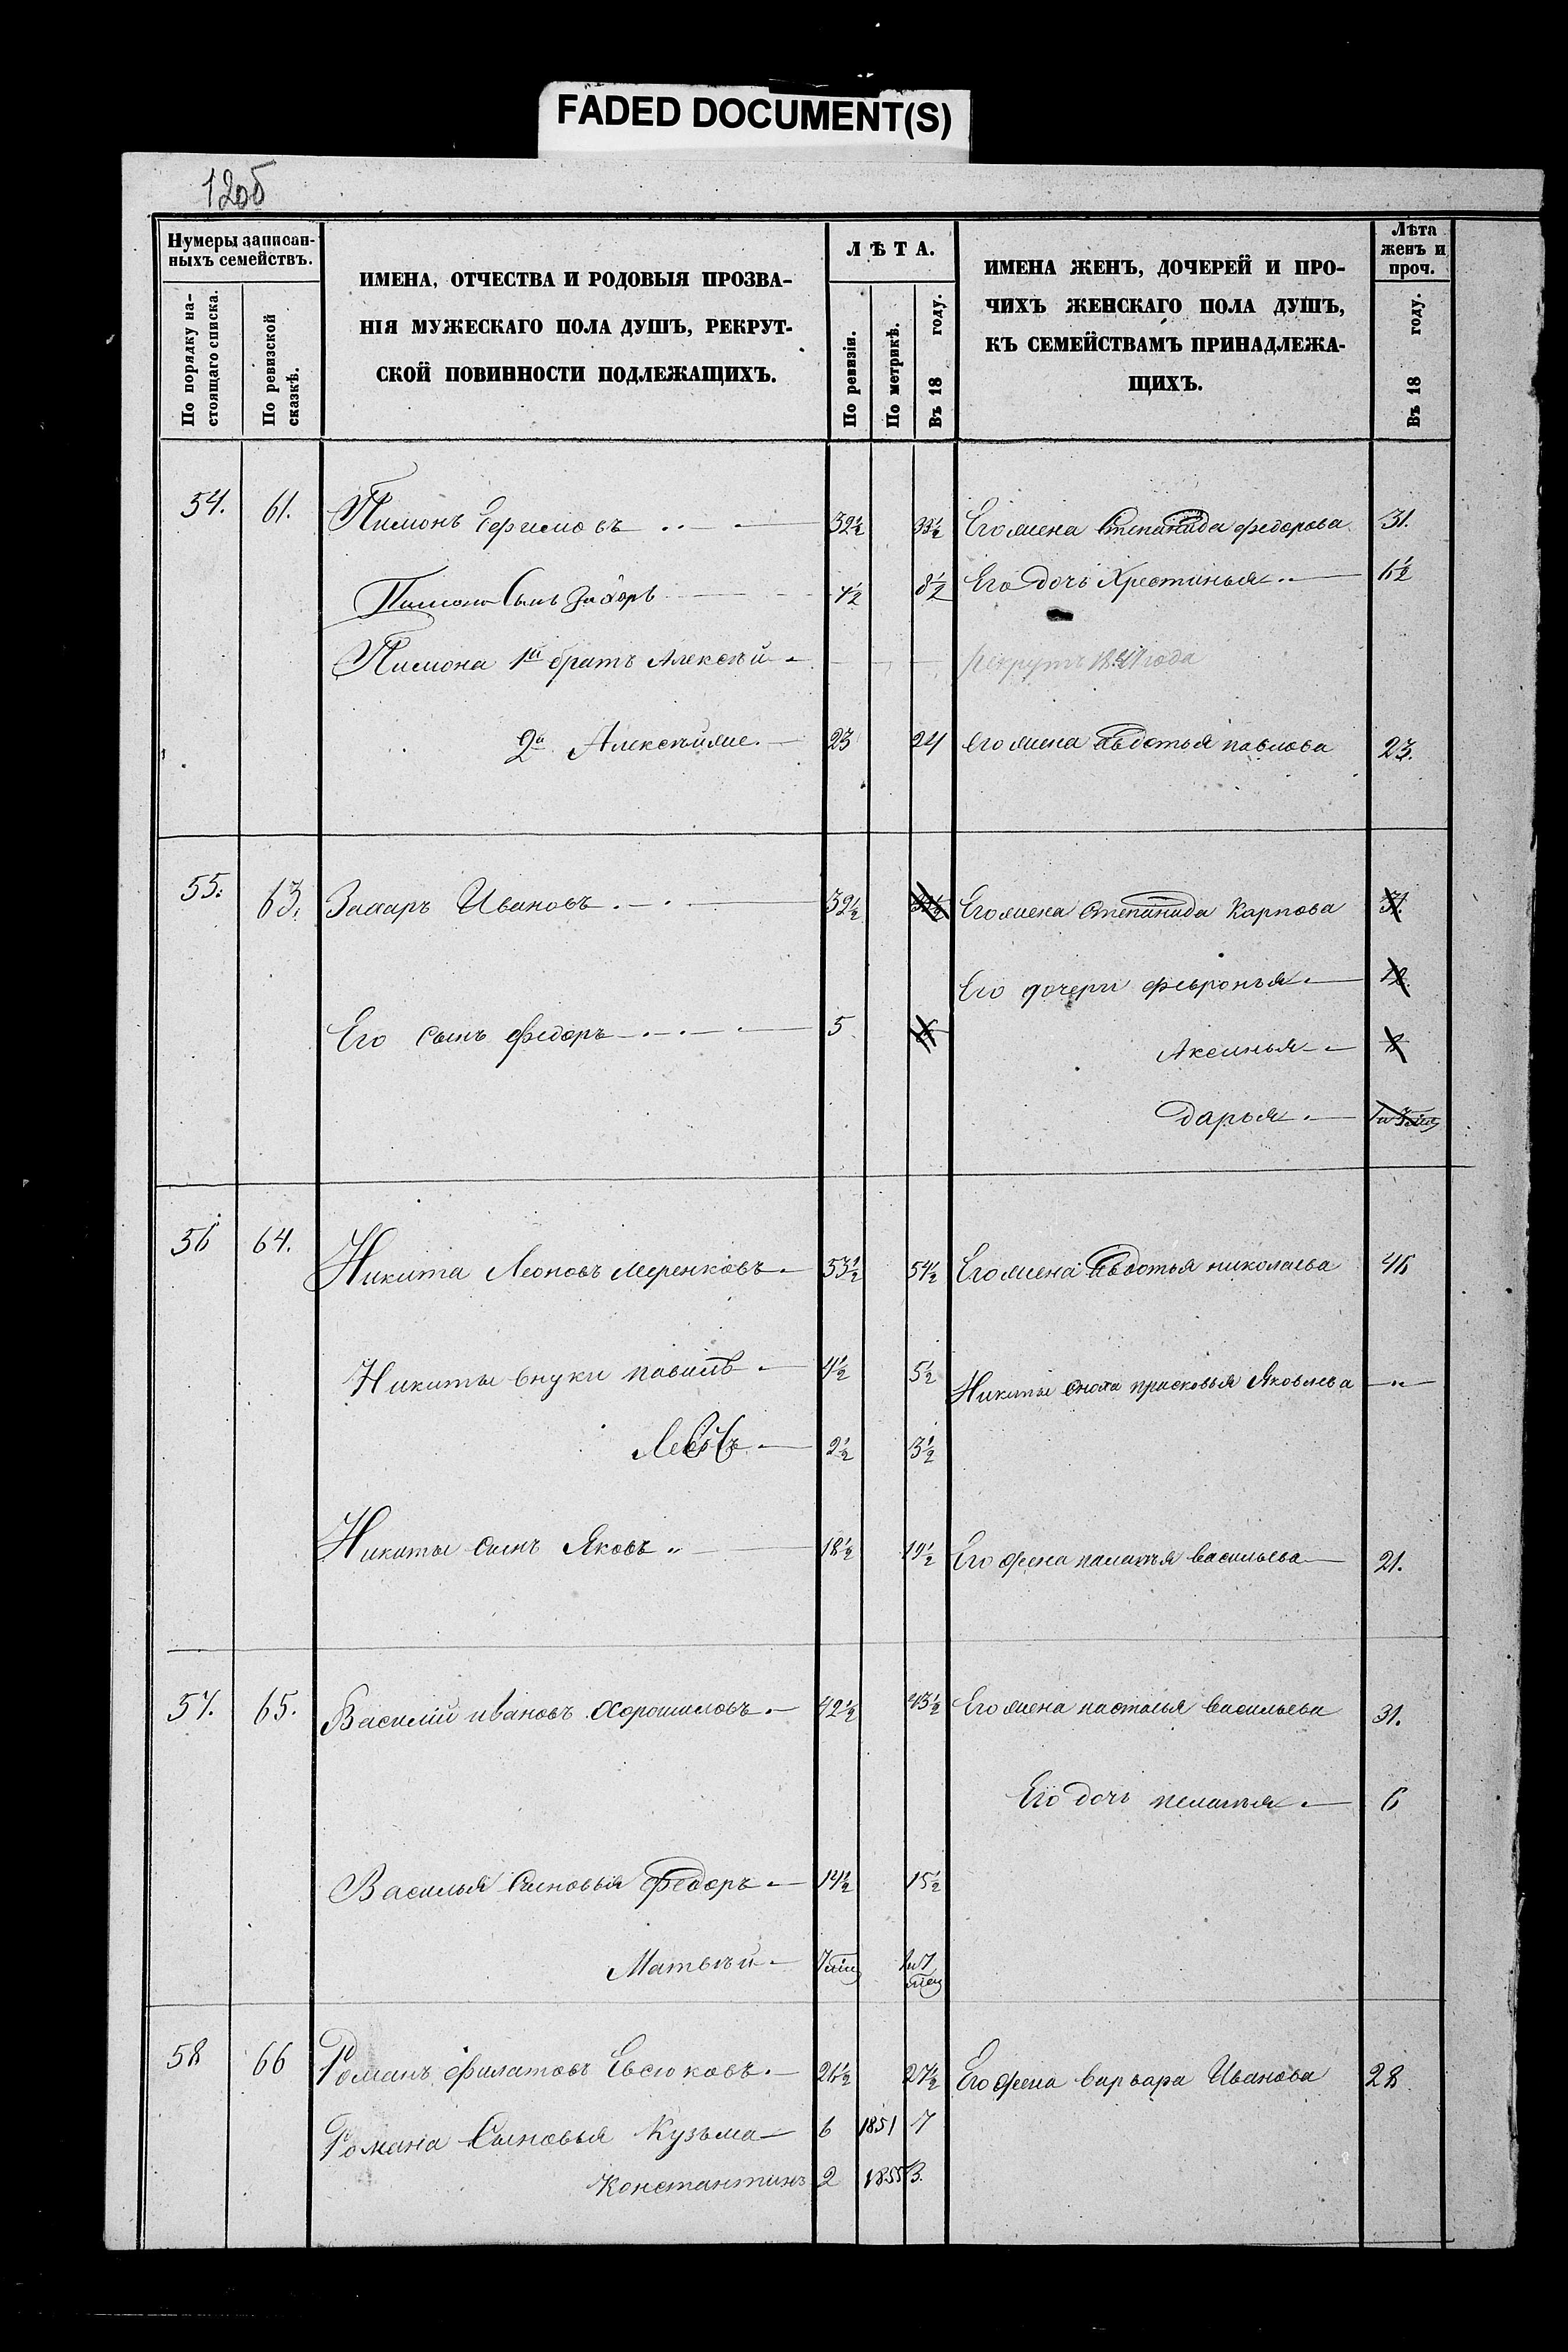 FADED DOCUMENT(S)
120б
Нумеры записан-
ныхъ семействъ.
По порядку на-
стоящаго списка.
По ревизской
сказкѣ.
ИМЕНА, ОТЧЕСТВА И РОДОВЫЯ ПРОЗВА-
НІЯ МУЖЕСКАГО ПОЛА ДУШЪ, РЕКРУТ-
СКОЙ ПОВИННОСТИ ПОДЛЕЖАЩИХЪ.
ЛѢТА.
По ревизіи.
По метрикѣ.
Въ 18 году.
ИМЕНА ЖЕНЪ, ДОЧЕРЕЙ И ПРО-
ЧИХЪ ЖЕНСКАГО ПОЛА ДУШЪ,
КЪ СЕМЕЙСТВАМЪ ПРИНАДЛЕЖА-
ЩИХЪ.
Лѣта
женъ и
проч.
Въ 18 году.
54. 61. Пимонъ Ефимовъ 32½ 33½ Его жена Степанида федорова 31.
Пимона Сынъ 7½ 8½ Его дочь Хрестинья 6½
Пимона 1й братъ Алексѣй рекрутъ года
2й Алексѣйже 23 24 его жена авдотья павлова 23.
55. 63. Захаръ Ивановъ 32½ 33½ Его жена Степанида Карпова 31.
Его дочери февронья
Его сынъ федоръ 5 6
Аксинья
Дарья
56 64. Никита Леоновъ Меренковъ 53½ 54½ Его жена Авдотья николаева 46
Никиты внуки павилъ 4½ 5½ Никиты сноха прасковья Яковлева
2½ 3½
Никиты сынъ Яковъ 18½ 19½ Его жена палагѣя васильева 21.
57. 65. Василій ивановъ Хорошиловъ 42½ 43½ Его жена настасья васильева 31.
Его дочь пелагѣя 6
Василья Сыновья федоръ 14½ 15½
Матвѣй 7 мец 1 и 7
мец
58 66 Романъ филатовъ Евсюковъ 26½ 27½ Его жена варвара Иванова 28
Романа Сыновья Кузьма 6 1851 7
Константинъ 2 1855 3.